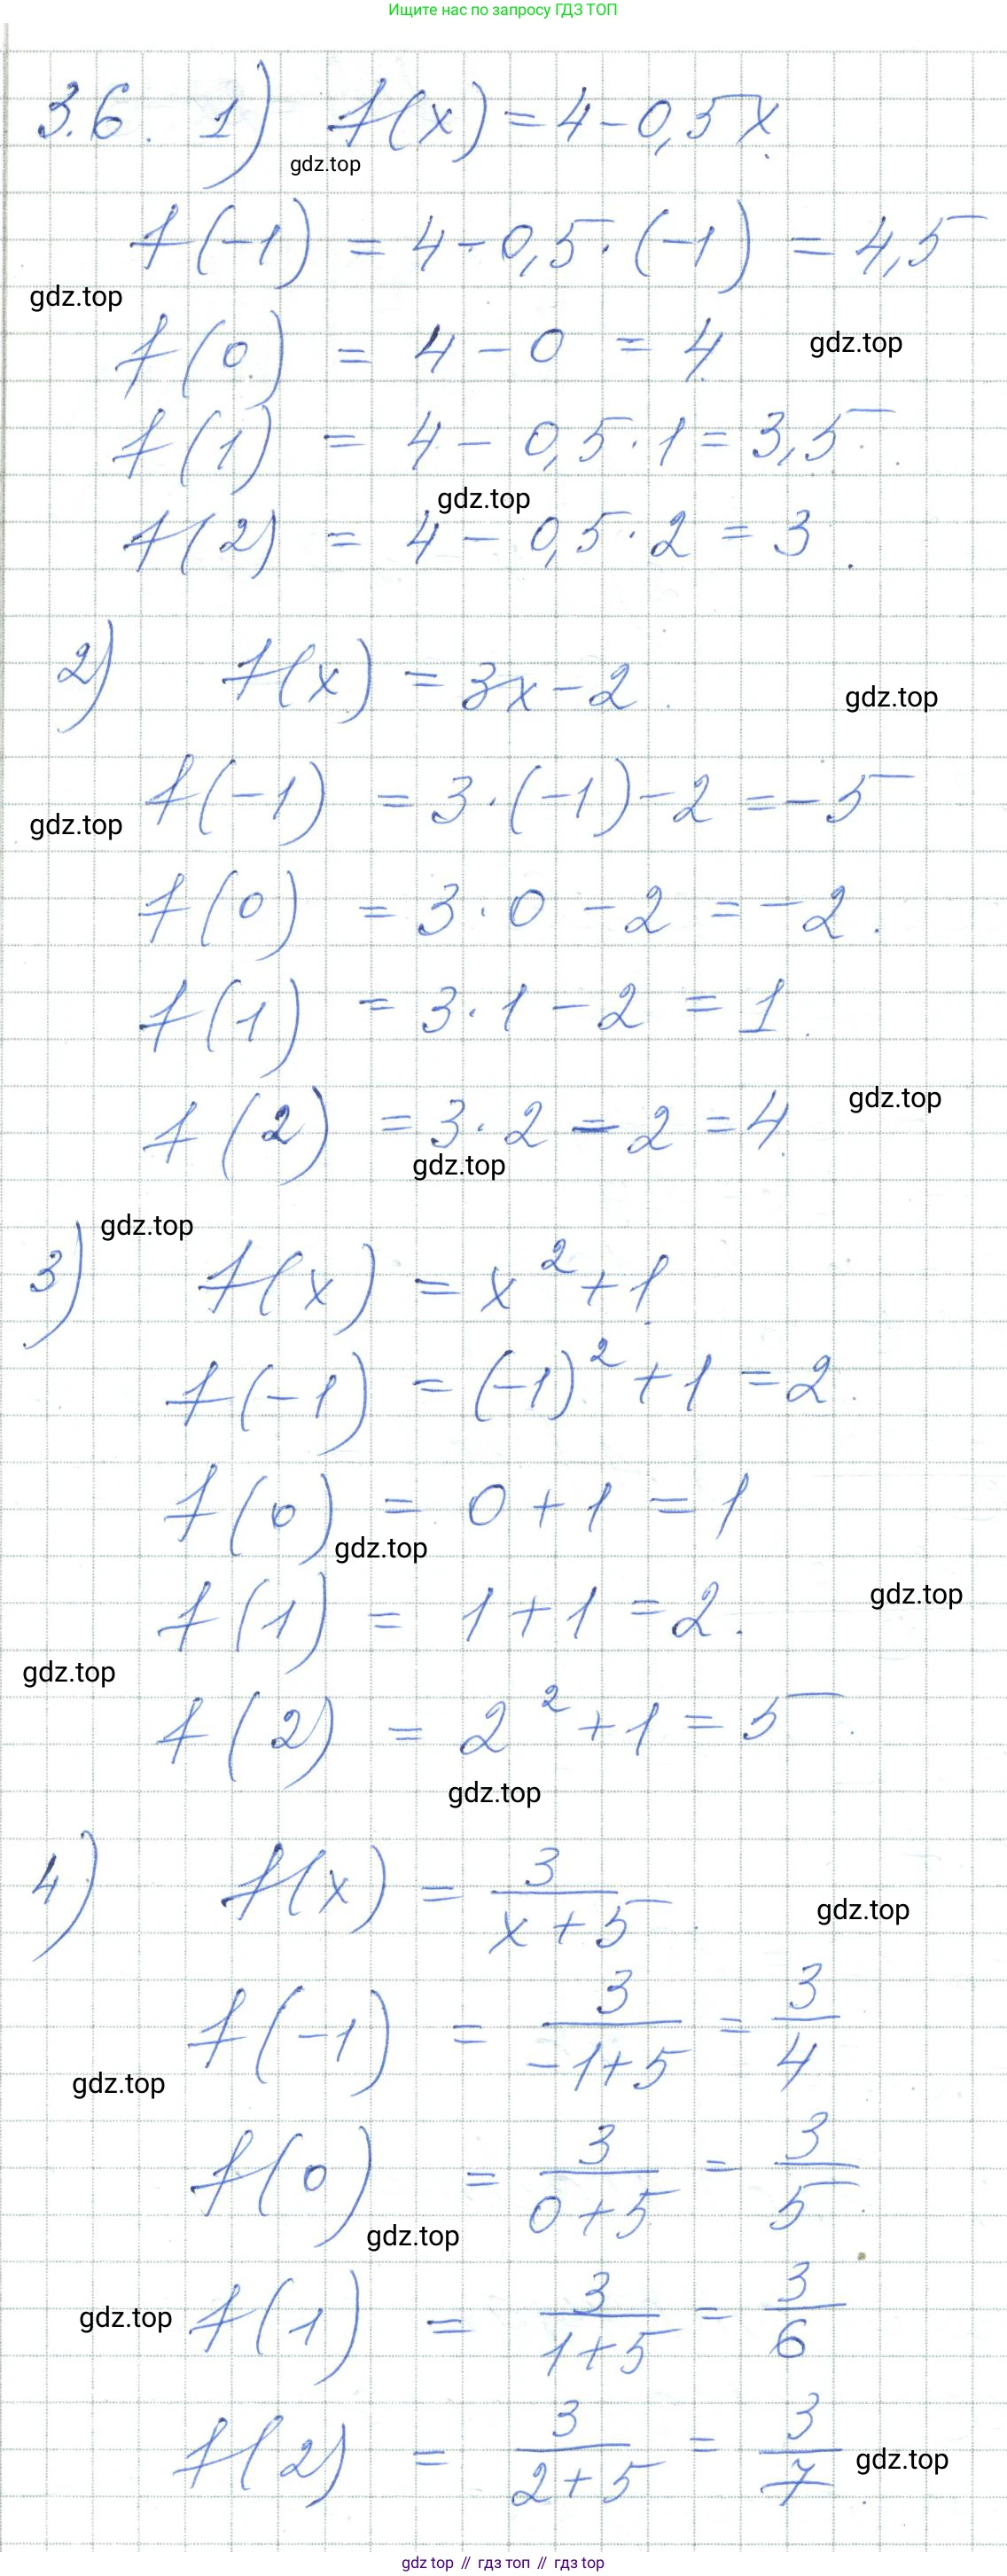 Ищите нас по запросу ГДЗ ТОП
3.6. 1) f(x) = 4 - 0,5x.
gdz.top
f(-1) = 4 - 0,5 · (-1) = 4,5
gdz.top
f(0) = 4 - 0 = 4.
gdz.top
f(1) = 4 - 0,5 · 1 = 3,5.
gdz.top
f(2) = 4 - 0,5 · 2 = 3.
2) f(x) = 3x - 2.
gdz.top
f(-1) = 3 · (-1) - 2 = -5
gdz.top
f(0) = 3 · 0 - 2 = -2.
f(1) = 3 · 1 - 2 = 1.
gdz.top
f(2) = 3 · 2 - 2 = 4.
gdz.top
gdz.top
3) f(x) = x² + 1.
f(-1) = (-1)² + 1 = 2.
f(0) = 0 + 1 = 1
gdz.top
gdz.top
f(1) = 1 + 1 = 2.
gdz.top
f(2) = 2² + 1 = 5.
gdz.top
4) f(x) = 3/(x + 5).
gdz.top
f(-1) = 3/(-1+5) = 3/4
gdz.top
f(0) = 3/(0+5) = 3/5.
gdz.top
gdz.top
f(1) = 3/(1+5) = 3/6
f(2) = 3/(2+5) = 3/7.
gdz.top
gdz top // гдз топ // гдз top